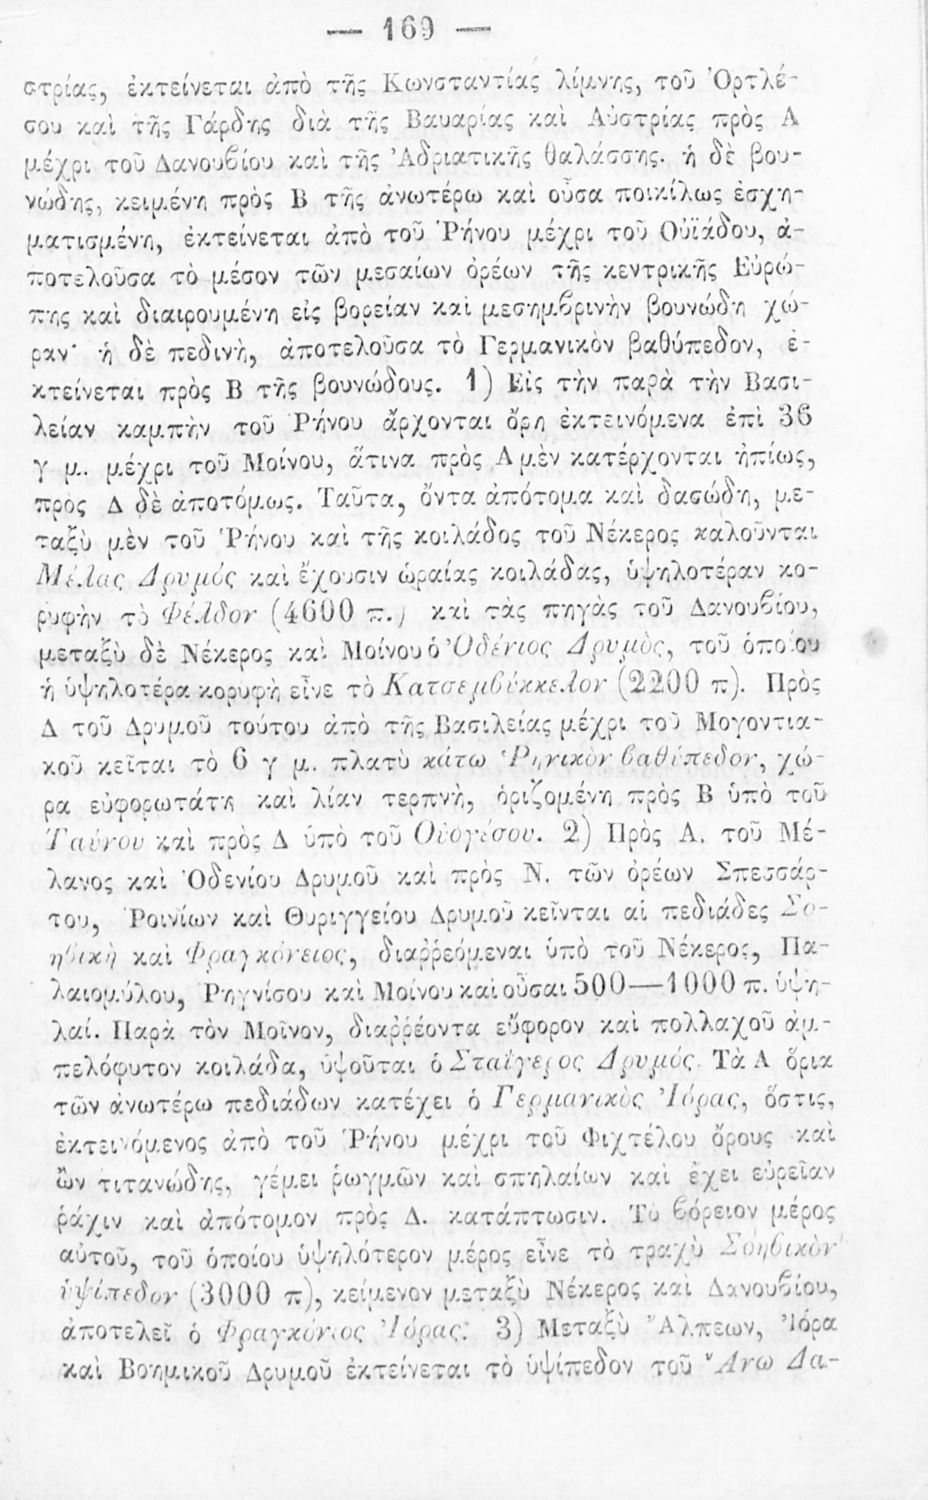 — 169 —
στρίας, ἐκτείνεται ἀπὸ τῆς Κωνσταντίας λίμνης, τοῦ Ὀρτλέ-
σου καὶ τῆς Γάρδης διὰ τῆς Βαυαρίας καὶ Αὐστρίας πρὸς Α
μέχρι τοῦ Δανουβίου καὶ τῆς Ἀδριατικῆς θαλάσσης. ἡ δὲ βου-
νώδης, κειμένη πρὸς Β τῆς ἀνωτέρω καὶ οὖσα ποικίλως ἐσχη-
ματισμένη, ἐκτείνεται ἀπὸ τοῦ Ῥήνου μέχρι τοῦ Οὐϊάδου, ἀ-
ποτελοῦσα τὸ μέσον τῶν μεσαίων ὀρέων τῆς κεντρικῆς Εὐρώ-
πης καὶ διαιρουμένη εἰς βορείαν καὶ μεσημβρινὴν βουνώδη χώ-
ραν· ἡ δὲ πεδινὴ, ἀποτελοῦσα τὸ Γερμανικὸν βαθύπεδον, ἐ-
κτείνεται πρὸς Β τῆς βουνώδους. 1) Εἰς τὴν παρὰ τὴν Βασι-
λείαν καμπὴν τοῦ Ῥήνου ἄρχονται ὄρη ἐκτεινόμενα ἐπὶ 36
γ μ. μέχρι τοῦ Μοίνου, ἅτινα πρὸς Α μὲν κατέρχονται ἠπίως,
πρὸς Δ δὲ ἀποτόμως. Ταῦτα, ὄντα ἀπότομα καὶ δασώδη, με-
ταξὺ μὲν τοῦ Ῥήνου καὶ τῆς κοιλάδος τοῦ Νέκερος καλοῦνται
Μέλας Δρυμός καὶ ἔχουσιν ὡραίας κοιλάδας, ὑψηλοτέραν κο-
ρυφὴν τὸ Φέλδον (4600 π.) καὶ τὰς πηγὰς τοῦ Δανουβίου,
μεταξὺ δὲ Νέκερος καὶ Μοίνου ὁ Ὀδένιος Δρυμὸς, τοῦ ὁποίου
ἡ ὑψηλοτέρα κορυφὴ εἶνε τὸ Κατσεμβύκκελον (2200 π). Πρὸς
Δ τοῦ Δρυμοῦ τούτου ἀπὸ τῆς Βασιλείας μέχρι τοῦ Μογοντια-
κοῦ κεῖται τὸ 6 γ μ. πλατὺ κάτω Ῥηνικὸν βαθύπεδον, χώ-
ρα εὐφορωτάτη καὶ λίαν τερπνὴ, ὁριζομένη πρὸς Β ὑπὸ τοῦ
Ταύνου καὶ πρὸς Δ ὑπὸ τοῦ Οὐογέσου. 2) Πρὸς Α. τοῦ Μέ-
λανος καὶ Ὀδενίου Δρυμοῦ καὶ πρὸς Ν. τῶν ὀρέων Σπεσσάρ-
του, Ῥοινίων καὶ Θυριγγείου Δρυμοῦ κεῖνται αἱ πεδιάδες Σο-
ηβικὴ καὶ Φραγκόνειος, διαῤῥεόμεναι ὑπὸ τοῦ Νέκερος, Πα-
λαιομύλου, Ῥηγνίσου καὶ Μοίνου καὶ οὖσαι 500—1000 π. ὑψη-
λαί. Παρὰ τὸν Μοῖνον, διαῤῥέοντα εὔφορον καὶ πολλαχοῦ ἀμ-
πελόφυτον κοιλάδα, ὑψοῦται ὁ Σταΐγερος Δρυμός. Τὰ Α ὅρια
τῶν ἀνωτέρω πεδιάδων κατέχει ὁ Γερμανικὸς Ἰόρας, ὅστις,
ἐκτεινόμενος ἀπὸ τοῦ Ῥήνου μέχρι τοῦ Φιχτέλου ὄρους καὶ
ὢν τιτανώδης, γέμει ῥωγμῶν καὶ σπηλαίων καὶ ἔχει εὐρεῖαν
ῥάχιν καὶ ἀπότομον πρὸς Δ. κατάπτωσιν. Τὸ βόρειον μέρος
αὐτοῦ, τοῦ ὁποίου ὑψηλότερον μέρος εἶνε τὸ τραχὺ Σοηβικὸν
ὑψίπεδον (3000 π), κείμενον μεταξὺ Νέκερος καὶ Δανουβίου,
ἀποτελεῖ ὁ Φραγκόνιος Ἰόρας. 3) Μεταξὺ Ἄλπεων, Ἰόρα
καὶ Βοημικοῦ Δρυμοῦ ἐκτείνεται τὸ ὑψίπεδον τοῦ Ἄνω Δα-